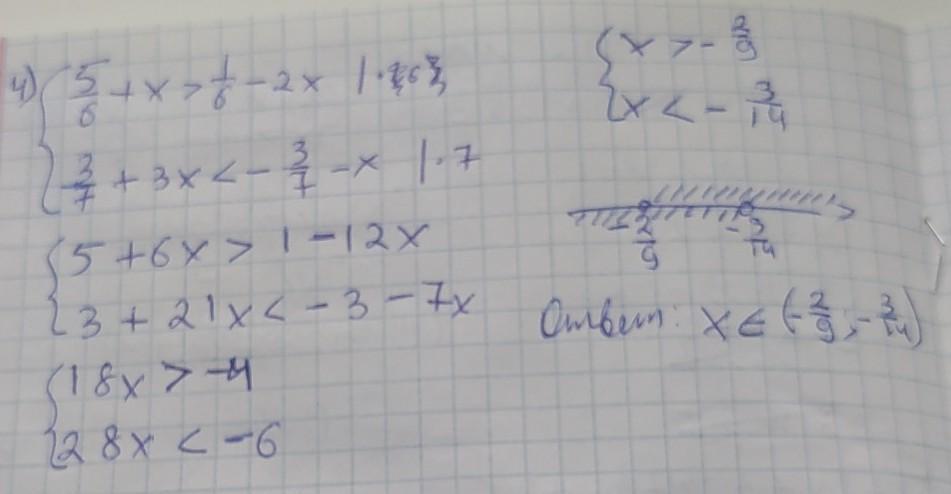 4) { 5/6 + x > 1/6 - 2x | · 6
3/7 + 3x < - 3/7 - x | · 7
{ 5 + 6x > 1 - 12x
3 + 21x < - 3 - 7x
{ 18x > -4
28x < -6
{ x > - 2/9
x < - 3/14
- 2/9 - 3/14
Ответ: x ∈ (- 2/9; - 3/14)